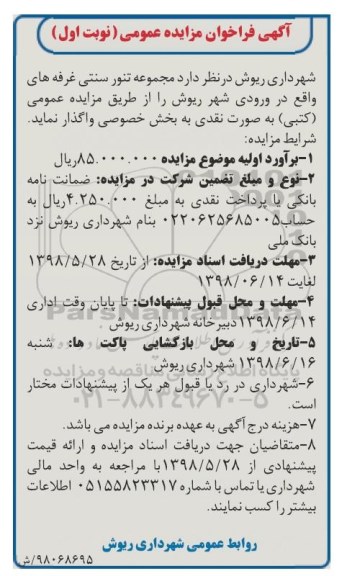 آگهی فراخوان مزایده عمومی (نوبت اول)
شهرداری ریوش درنظر دارد مجموعه تنور سنتی غرفه های
واقع در ورودی شهر ریوش را از طریق مزایده عمومی
(کتبی) به صورت نقدی به بخش خصوصی واگذار نماید.
شرایط مزایده:
۱-برآورد اولیه موضوع مزایده ۸۵.۰۰۰.۰۰۰ریال
۲-نوع و مبلغ تضمین شرکت در مزایده: ضمانت نامه
بانکی یا پرداخت نقدی به مبلغ ۴.۲۵۰.۰۰۰ریال به
حساب۰۲۲۰۶۲۵۶۸۵۰۰۵ بنام شهرداری ریوش نزد
بانک ملی
۳-مهلت دریافت اسناد مزایده: از تاریخ ۱۳۹۸/۵/۲۸
لغایت ۱۳۹۸/۰۶/۱۴
۴-مهلت و محل قبول پیشنهادات: تا پایان وقت اداری
۱۳۹۸/۶/۱۴دبیرخانه شهرداری ریوش
۵-تاریخ و محل بازگشایی پاکت ها: شنبه
۱۳۹۸/۶/۱۶ شهرداری ریوش
۶-شهرداری در رد یا قبول هر یک از پیشنهادات مختار
است.
۷-هزینه درج آگهی به عهده برنده مزایده می باشد.
۸-متقاضیان جهت دریافت اسناد مزایده و ارائه قیمت
پیشنهادی از ۱۳۹۸/۵/۲۸با مراجعه به واحد مالی
شهرداری یا تماس با شماره ۰۵۱۵۵۸۲۳۳۱۷ اطلاعات
بیشتر را کسب نمایند.
روابط عمومی شهرداری ریوش
۹۸۰۶۸۶۹۵/ش
ParsNamadData
پایگاه اطلاع رسانی مناقصه و مزایده
۰۲۱-۸۸۳۴۹۶۷۰-۵